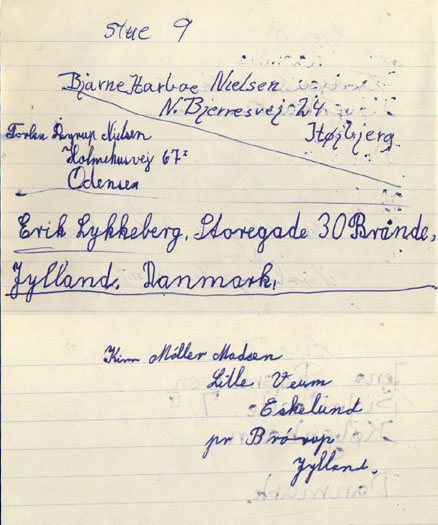 stue 9
Bjarne Harboe Nielsen
N. Bjerresvej 24
Højbjerg
Torben Dyrup Nielsen
Holmehusvej 67¹
Odense
Erik Lykkeberg, Storegade 30 Brande,
Jylland. Danmark,
Kim Møller Madsen
Lille Veum
Eskelund
pr Brörup
Jylland.